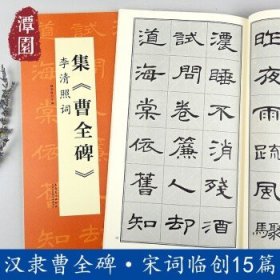 潭園
集《曹全碑》
李清照词
昨夜雨疏風驟
濃睡不消殘酒
試問卷簾人却
道海棠依舊知
汉隶曹全碑·宋词临创15篇